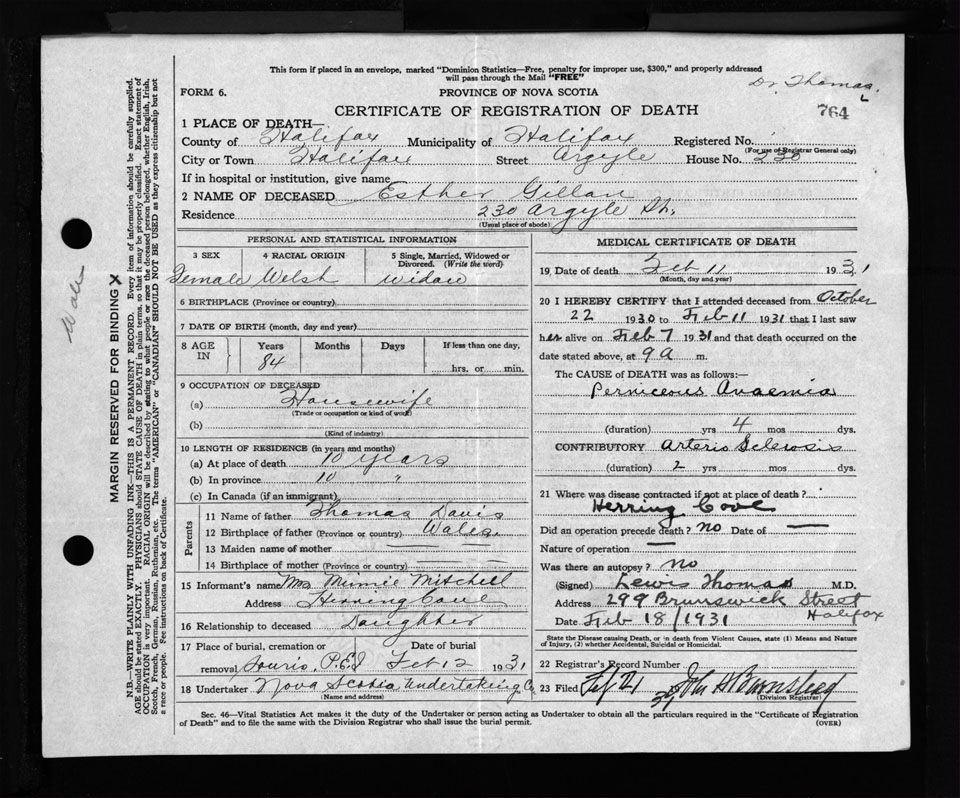 This form if placed in an envelope, marked "Dominion Statistics—Free, penalty for improper use, $300," and properly addressed
will pass through the Mail "FREE"
Dr. Thomas
FORM 6. PROVINCE OF NOVA SCOTIA
764
CERTIFICATE OF REGISTRATION OF DEATH
1 PLACE OF DEATH—
County of Halifax Municipality of Halifax Registered No.
(For use of Registrar General only)
City or Town Halifax Street Argyle House No. 230
If in hospital or institution, give name
2 NAME OF DECEASED Esther Gillan
Residence 230 Argyle St.
(Usual place of abode)
PERSONAL AND STATISTICAL INFORMATION
3 SEX 4 RACIAL ORIGIN 5 Single, Married, Widowed or
Divorced. (Write the word)
Female Welsh widow
6 BIRTHPLACE (Province or country)
7 DATE OF BIRTH (month, day and year)
8 AGE IN Years Months Days If less than one day,
84 hrs. or min.
9 OCCUPATION OF DECEASED
(a) Housewife
(Trade or occupation or kind of work)
(b)
(Kind of industry)
10 LENGTH OF RESIDENCE (in years and months)
(a) At place of death 10 years
(b) In province 10 "
(c) In Canada (if an immigrant)
Parents
11 Name of father Thomas Davis
12 Birthplace of father (Province or country) Wales.
13 Maiden name of mother —
14 Birthplace of mother (Province or country) —
15 Informant's name Mrs Minnie Mitchell
Address Herring Cove
16 Relationship to deceased Daughter
17 Place of burial, cremation or Date of burial
removal Souris, P.E.I Feb 12 1931
18 Undertaker Nova Scotia Undertaking Co
(Name and address)
MEDICAL CERTIFICATE OF DEATH
19 Date of death Feb 11 1931
(Month, day and year)
20 I HEREBY CERTIFY that I attended deceased from October
22 1930 to Feb 11 1931 that I last saw
her alive on Feb 7 1931 and that death occurred on the
date stated above, at 9 a m.
The CAUSE of DEATH was as follows:
Pernicious Anaemia
(duration) yrs 4 mos dys.
CONTRIBUTORY Arterio Sclerosis
(duration) 2 yrs mos dys.
21 Where was disease contracted if not at place of death?
Herring Cove
Did an operation precede death? no Date of —
Nature of operation —
Was there an autopsy? no
(Signed) Lewis Thomas M.D.
Address 299 Brunswick Street
Halifax
Date Feb 18/1931
State the Disease causing Death, or in death from Violent Causes, state (1) Means and Nature
of Injury, (2) whether Accidental, Suicidal or Homicidal.
22 Registrar's Record Number
23 Filed Feb 21
(Division Registrar)
Sec. 46—Vital Statistics Act makes it the duty of the Undertaker or person acting as Undertaker to obtain all the particulars required in the "Certificate of Registration
of Death" and to file the same with the Division Registrar who shall issue the burial permit.
(OVER)
Wales
MARGIN RESERVED FOR BINDING X
N.B.—WRITE PLAINLY WITH UNFADING INK—THIS IS A PERMANENT RECORD. Every item of information should be carefully supplied.
AGE should be stated EXACTLY. PHYSICIANS should STATE CAUSE OF DEATH in plain terms, so that it may be properly classified. Exact statement of
OCCUPATION is very important. RACIAL ORIGIN will be described by stating to what people or race the deceased person belonged, whether English, Irish,
Scotch, French, German, Russian, Ruthenian, etc. The terms "AMERICAN" or "CANADIAN" SHOULD NOT BE USED as they express citizenship but not
a race or people. Fee instructions on back of Certificate.